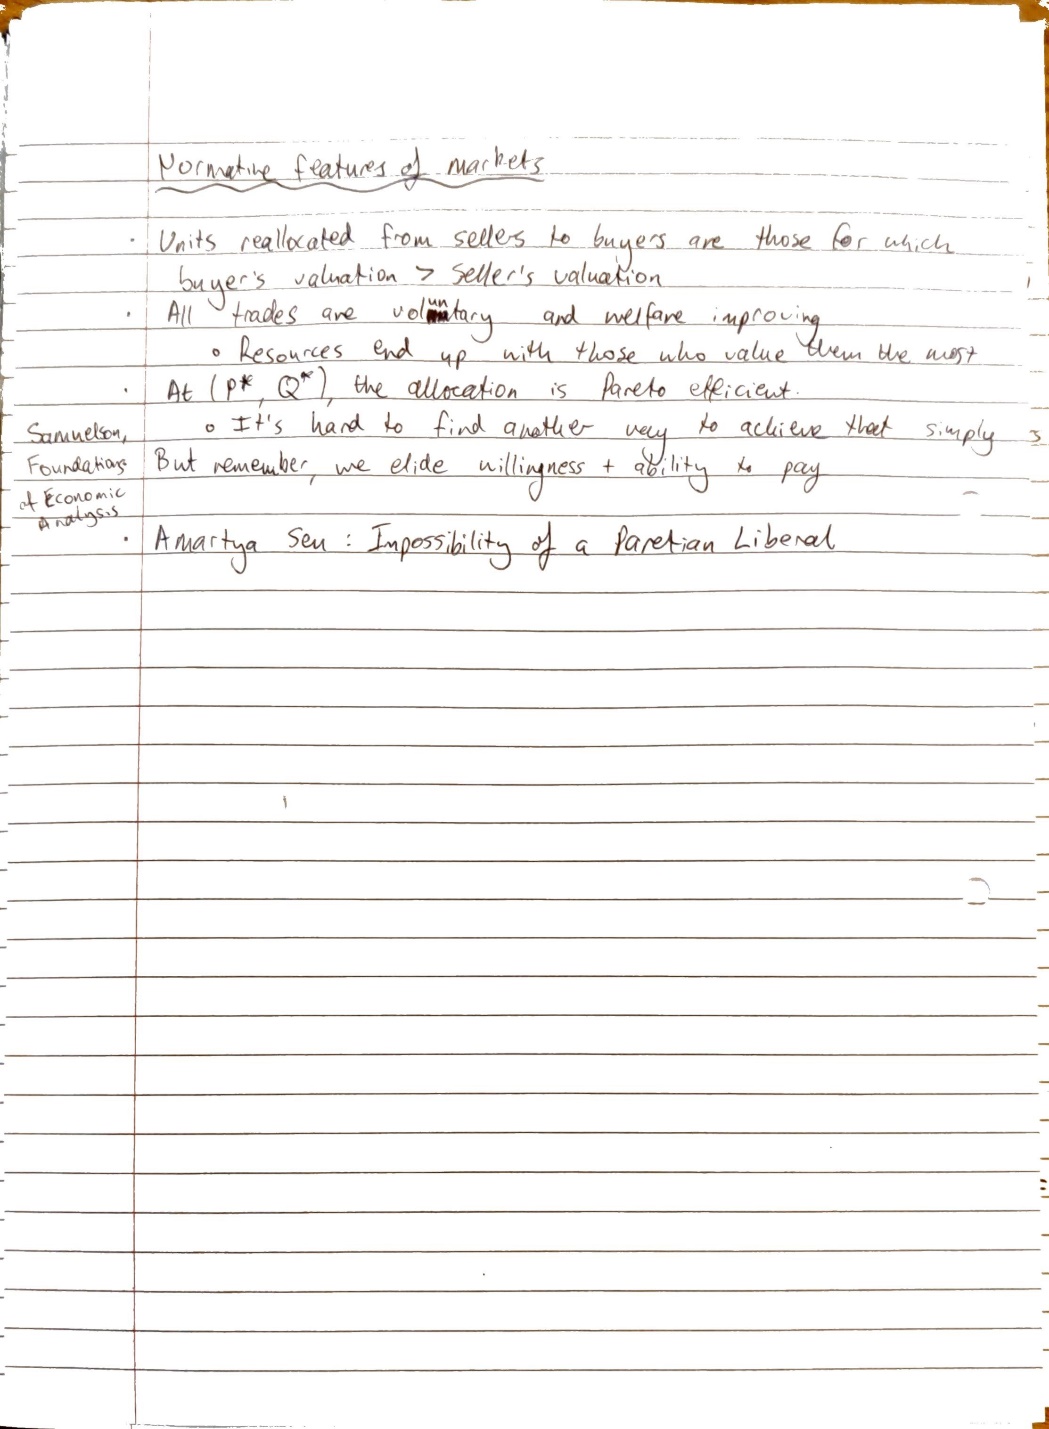 Normative features of markets
· Units reallocated from sellers to buyers are those for which
buyer's valuation > seller's valuation
· All trades are voluntary and welfare improving
o Resources end up with those who value them the most
· At (P*, Q*), the allocation is Pareto efficient.
o It's hard to find another way to achieve that simply
But remember, we elide willingness + ability to pay
Samuelson,
Foundations
of Economic
Analysis
· Amartya Sen : Impossibility of a Paretian Liberal